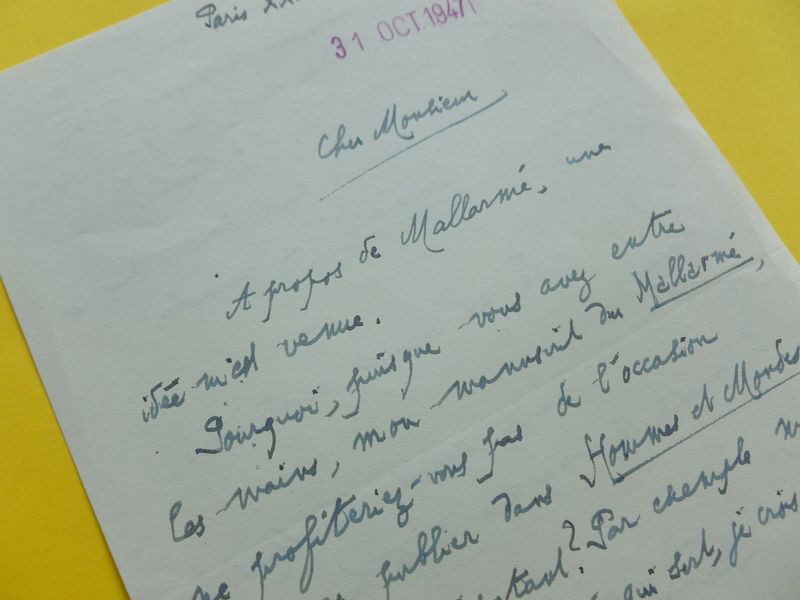 Paris
31 OCT.1947
Cher Monsieur
A propos de Mallarmé, une
idée m'est venue.
Pourquoi, puisque vous avez entre
les mains, mon manuscrit du Mallarmé,
ne profiteriez-vous pas de l'occasion
publier dans Hommes et Mondes
? Par exemple
qui sort, je crois